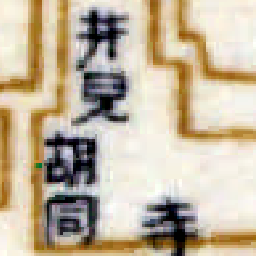 井見胡同
寺